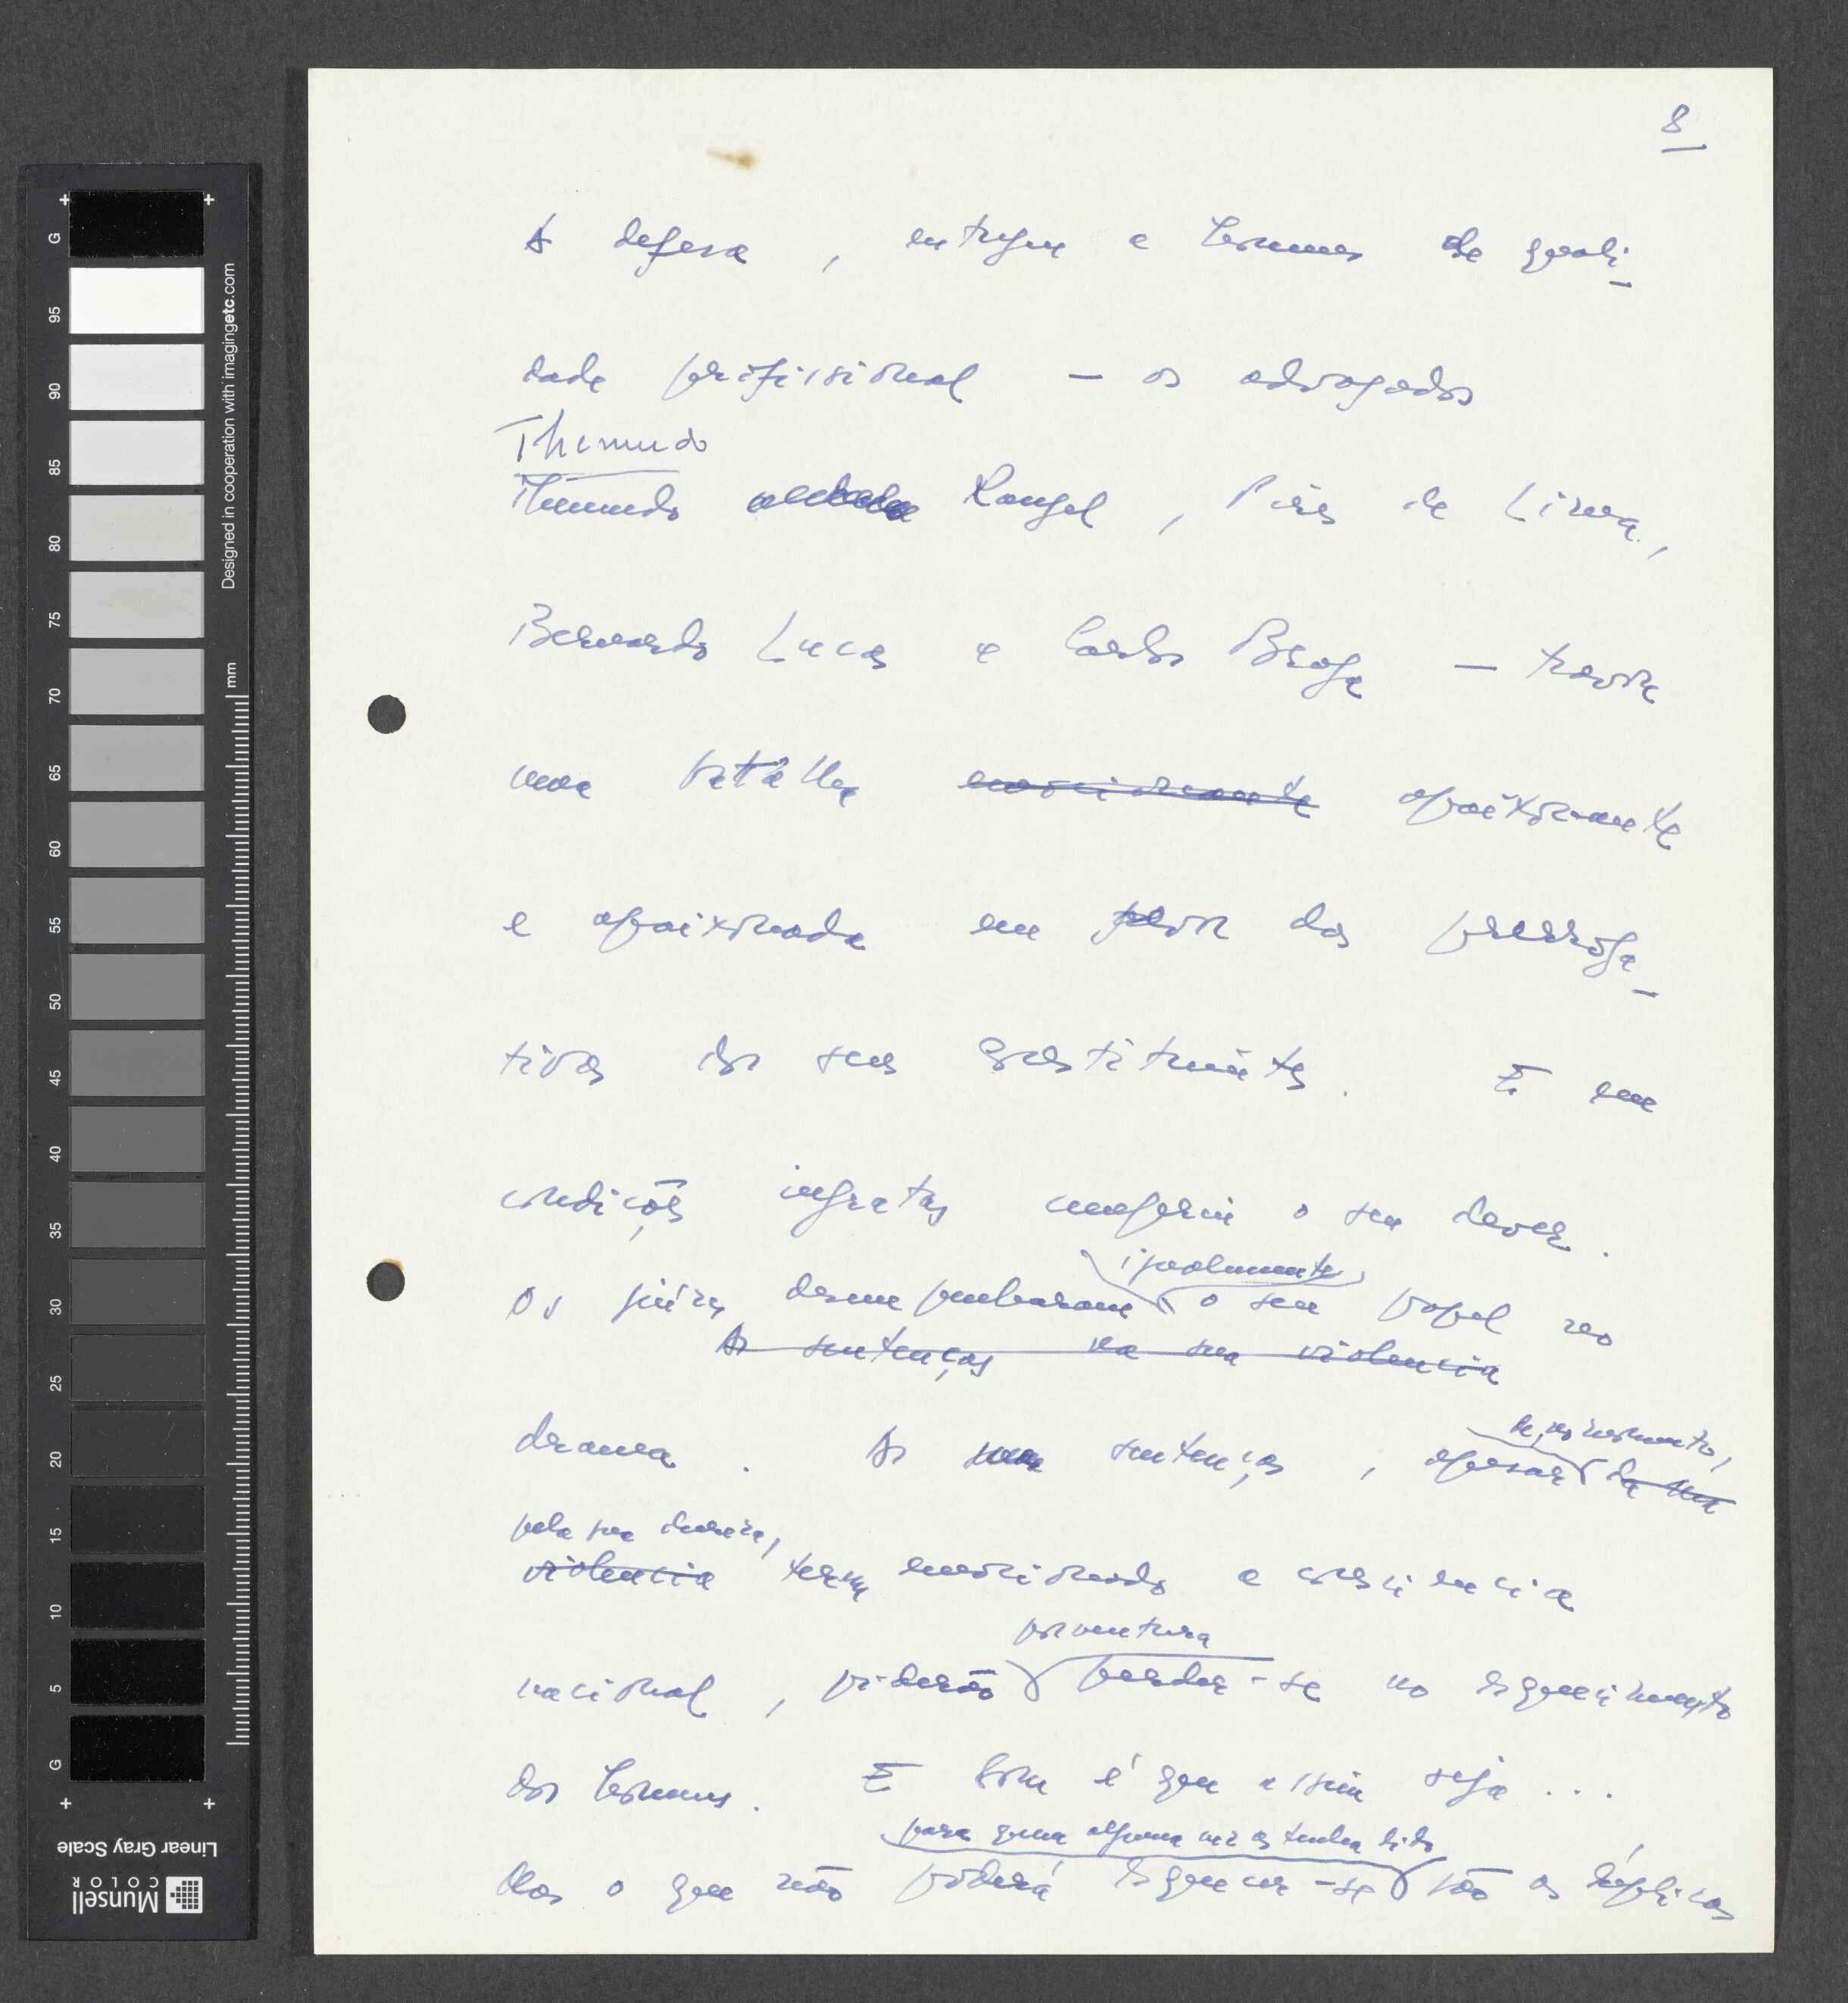 8
A defesa, entregue a homens de quali-
dade profissional — os advogados
Themudo
Themudo Rangel, Pires de Lima,
Bernardo Lucas e Carlos Braga — trava
uma batalha emocionante apaixonante
e apaixonada em prol das prerroga-
tivas dos seus constituintes. E em
condições ingratas cumpriu o seu dever.
igualmente
Os juízes desempenharam o seu papel no
As sentenças na sua violencia
drama. As suas sentenças, apesar de, no momento, da sua
pela sua dureza,
violencia terem emocionado a consciencia
porventura
nacional, poderão perder-se no esquecimento
dos homens. E bom é que assim seja...
para quem alguma vez as tenha lido
Mas o que não poderá esquecer-se são as súplicas
G 95 90 85 80 75 70 65 60 55 50 45 40 35 30 25 20 15 10 5 G
Designed in cooperation with imagingetc.com
mm
Linear Gray Scale
Munsell
COLOR